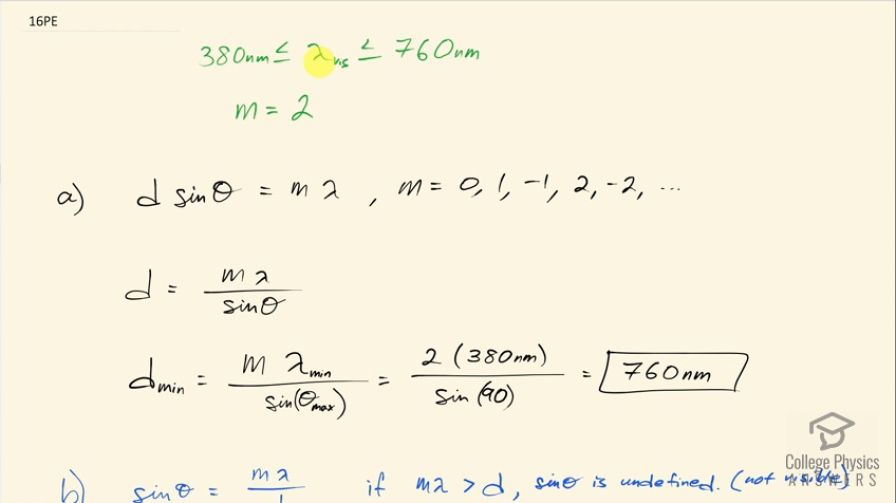 16PE
380nm ≤ λvis ≤ 760nm
m = 2
a) d sinθ = m λ , m = 0, 1, -1, 2, -2, ...
d = mλ / sinθ
dmin = m λmin / sin(θmax) = 2 (380nm) / sin(90) = 760nm
b) sinθ = mλ / if mλ > d, sinθ is undefined. (not visible)
College Physics
ANSWERS